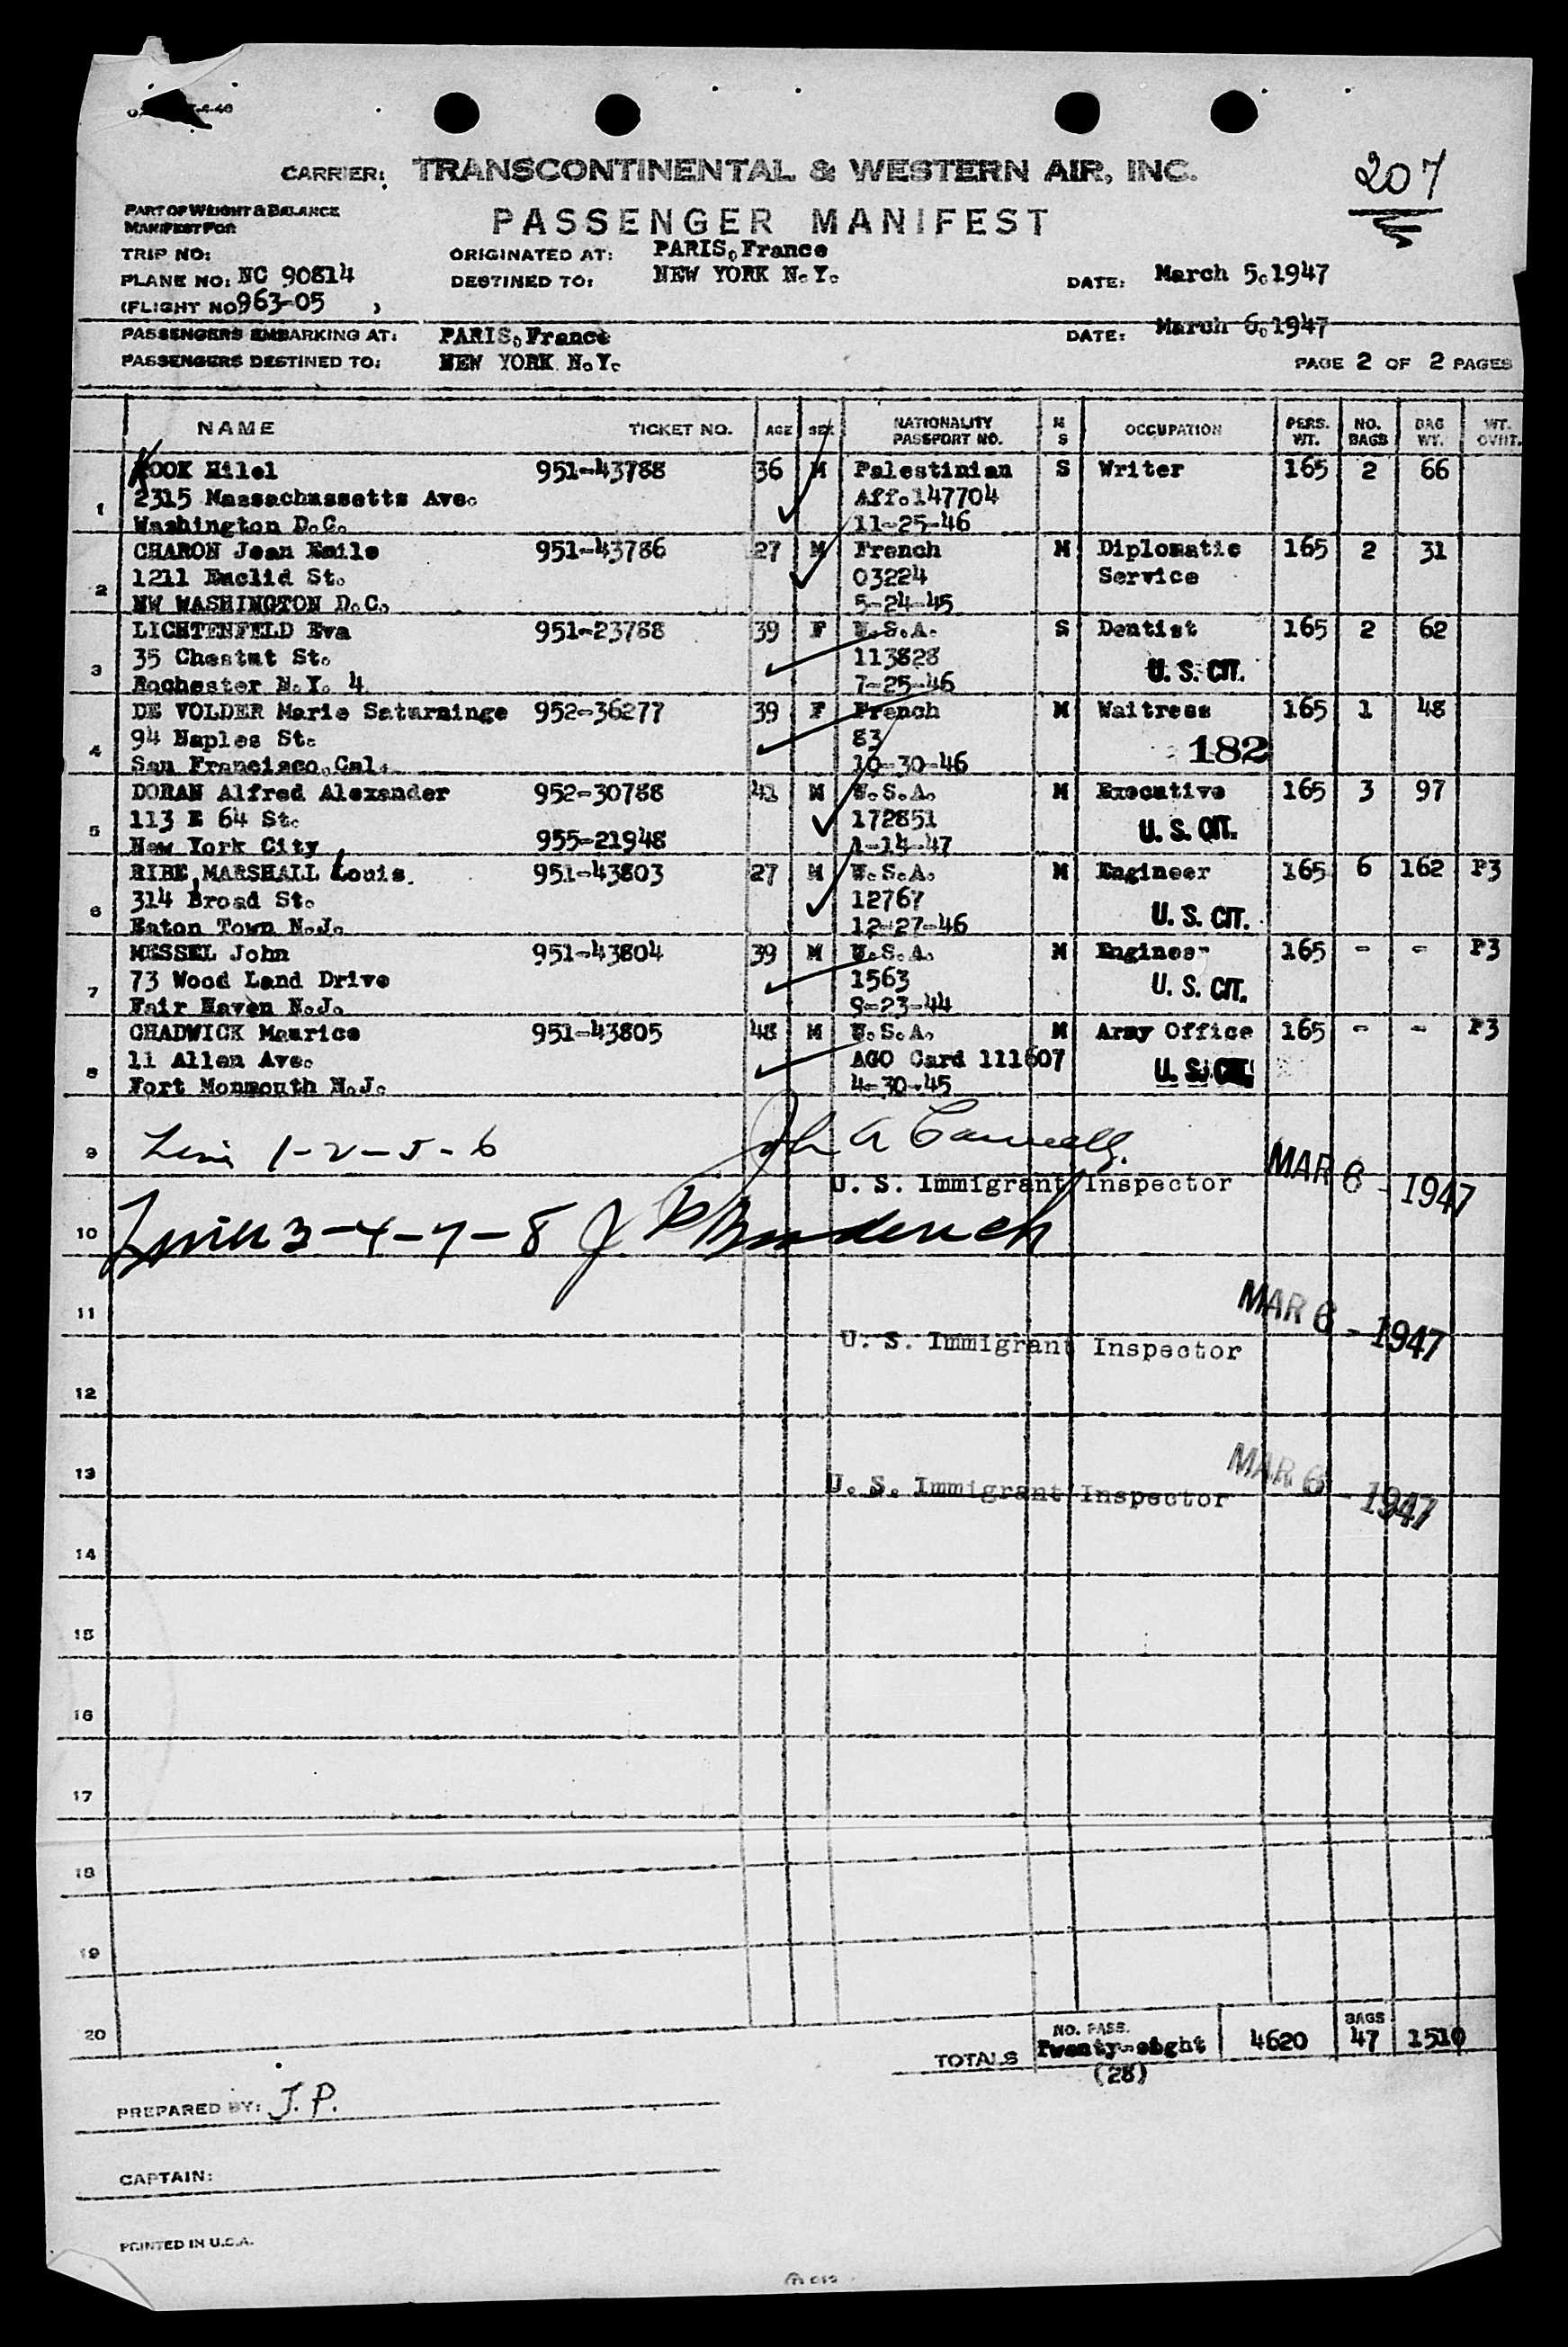 CARRIER: TRANSCONTINENTAL & WESTERN AIR, INC.
207
PART OF WEIGHT & BALANCE
MANIFEST FOR
PASSENGER MANIFEST
TRIP NO:
ORIGINATED AT: PARIS, France
PLANE NO: NC 90814
DESTINED TO: NEW YORK N.Y.
DATE: March 5, 1947
(FLIGHT NO 963-05 )
PASSENGERS EMBARKING AT: PARIS, France
DATE: March 6, 1947
PASSENGERS DESTINED TO: NEW YORK N.Y.
PAGE 2 OF 2 PAGES
NAME TICKET NO. AGE SEX NATIONALITY PASSPORT NO. M S OCCUPATION PERS. WT. NO. BAGS BAG WT. WT. OVHT.
1 KOOK Hilel 951-43788 36 M Palestinian S Writer 165 2 66
2315 Massachussetts Ave. Aff.147704
Washington D.C. 11-25-46
2 CHARON Jean Emile 951-43786 27 M French M Diplomatic 165 2 31
1211 Euclid St. 03224 Service
NW WASHINGTON D.C. 5-24-45
3 LICHTENFELD Eva 951-23788 39 F U.S.A. S Dentist 165 2 62
35 Chestnt St. 113828 U. S. CIT.
Rochester N.Y. 4 7-25-46
4 DE VOLDER Marie Saturninge 952-36277 39 F French M Waitress 165 1 48
94 Naples St. 83 182
San Francisco, Cal. 10-30-46
5 DORAN Alfred Alexander 952-30788 41 M U.S.A. M Executive 165 3 97
113 E 64 St. 172851 U. S. CIT.
New York City 955-21948 1-14-47
6 RIBE, MARSHALL Louis. 951-43803 27 M U.S.A. M Engineer 165 6 162 P3
314 Broad St. 12767 U. S. CIT.
Eaton Town N.J. 12-27-46
7 MESSEL John 951-43804 39 M U.S.A. M Engineer 165 - - P3
73 Wood Land Drive 1563 U. S. CIT.
Fair Haven N.J. 9-23-44
8 CHADWICK Maurice 951-43805 48 M U.S.A. M Army Office 165 - - P3
11 Allen Ave. AGO Card 111607 U. S. CIT.
Fort Monmouth N.J. 4-30-45
9 1-2-5-6 John A
U. S. Immigrant Inspector MAR 6 - 1947
10 Lines 3-4-7-8 J
11
U. S. Immigrant Inspector MAR 6 - 1947
12
13
U. S. Immigrant Inspector MAR 6 - 1947
14
15
16
17
18
19
20
TOTALS NO. PASS. Twenty-eight 4620 BAGS 47 1510
(28)
PREPARED BY: J.P.
CAPTAIN:
PRINTED IN U.S.A.